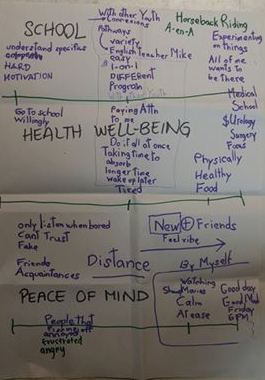 SCHOOL
understand specifics
HARD
MOTIVATION
with other Youth
→ Connexions
Pathways
variety
English Teacher Mike
easy
1-on-1
DIFFERENT
Program
with other Youth
Horseback Riding
A-en-A
Experimenting
on things
All of me
wants to
be there
Medical
School
Go to school
Willingly
Paying Attn
To me
HEALTH WELL-BEING
$Urology
Surgery
Focus
Do it all at once
Taking time to
absorb
longer time
wake up later
Tired
Physically
Healthy
Food
only listen when bored
Cant Trust
Fake
Friends
Acquaintances
Distance
New + Friends
Feel vibe
By Myself
PEACE OF MIND
Watching
Shows Movies
Calm
At ease
Good day
Good Mood
Friday
6PM
People that
annoyed
frustrated
angry